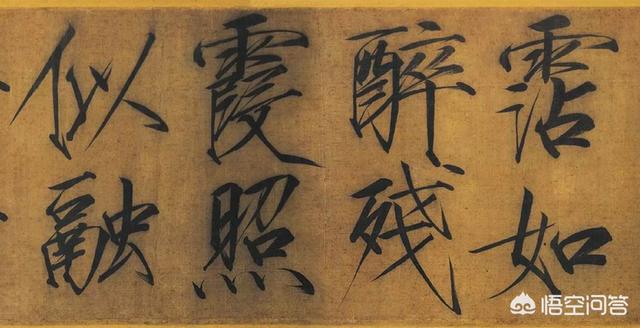 霑如
醉殘
霞照
似融
悟空问答